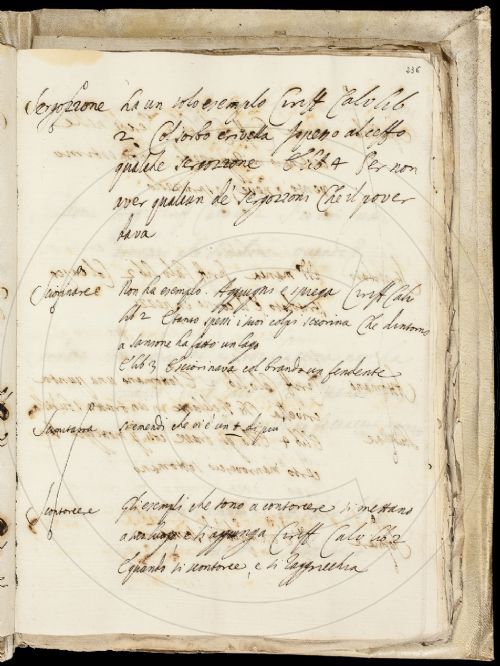 236
Sergozzone ha un solo esempio Ciriff Calv lib
2 Col sorbo e rivedea spesso al ceffo
qualche sergozzone E lib 4 Per non
aver qualcun de' sergozzoni Che il pover
dava
Sciorinare Non ha esempio. Aggiughi e spiega Ciriff Calv
lib 2 E tanto spessi i suoi colpi sciorina Che dintorno
a sansone ha fatto un lago
E lib 3 E sciorinava col brando un fendente
Scimitarra emendi che vi è un t di più
Scontorcere Gli esempli che sono a contorcere si mettano
a e s'aggiunga Ciriff Calv lib 2
E quando si scontorce, e si raggricchia